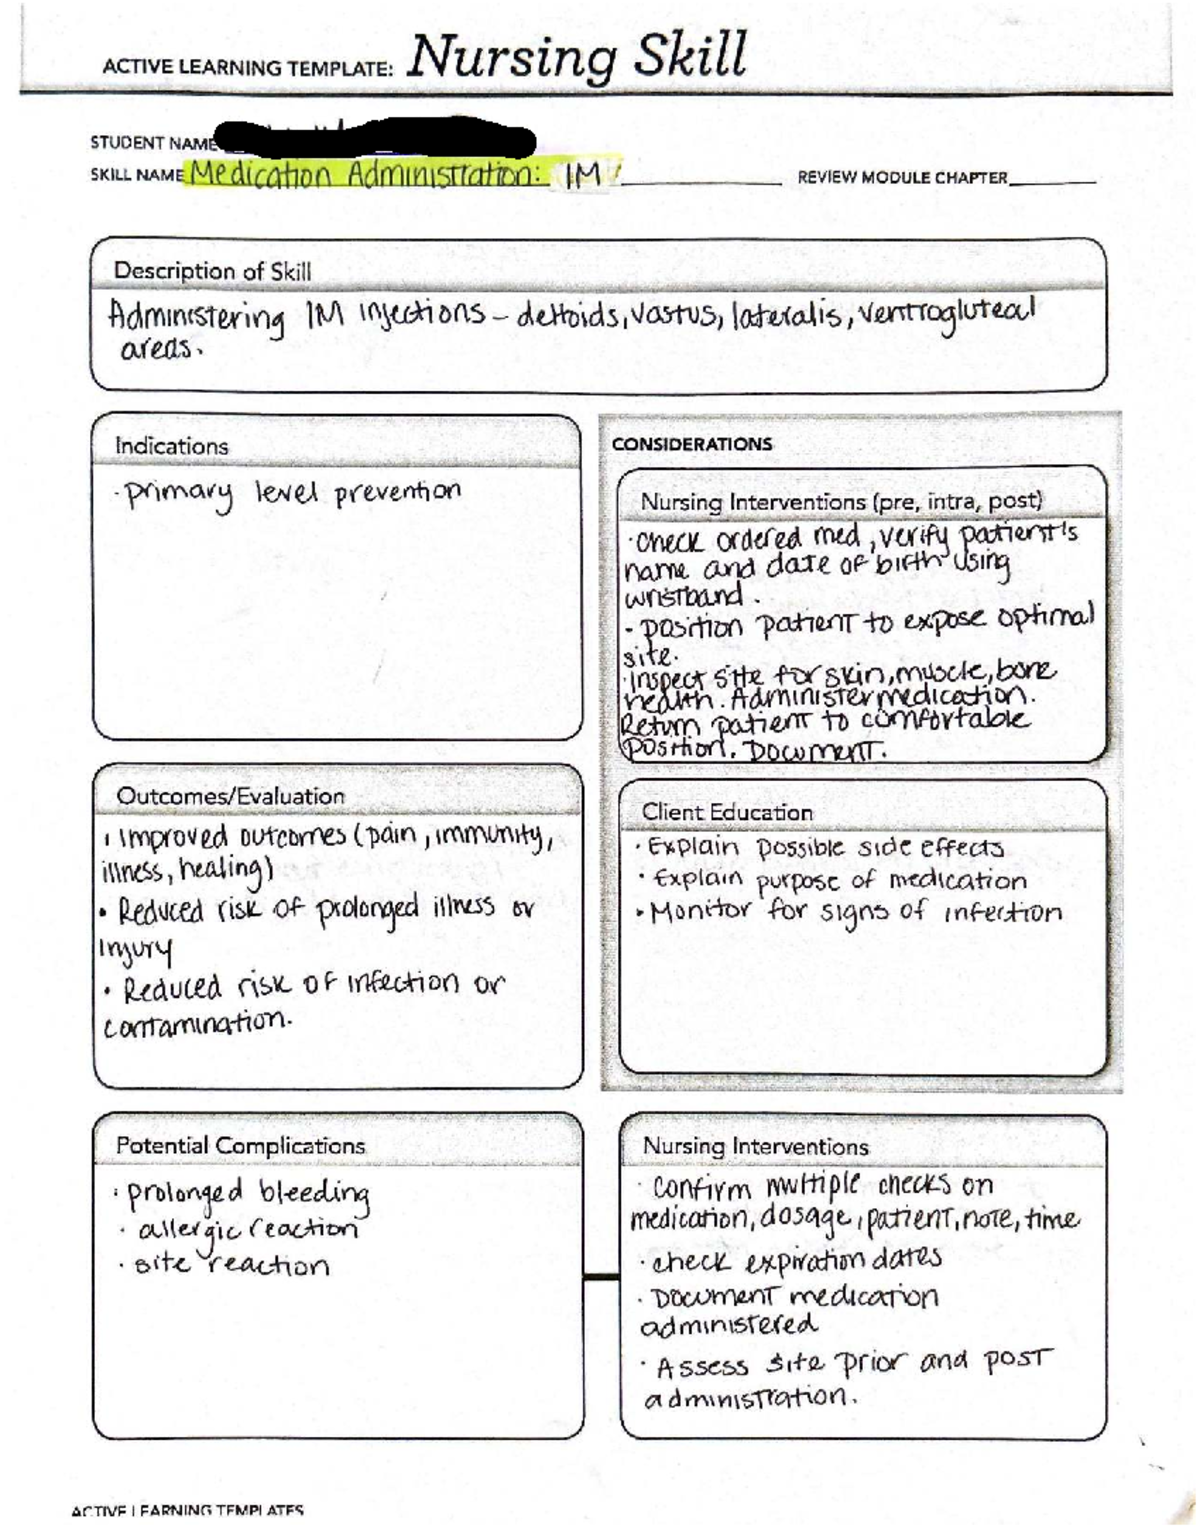 ACTIVE LEARNING TEMPLATE: Nursing Skill
STUDENT NAME
SKILL NAME Medication Administration: IM
REVIEW MODULE CHAPTER
Description of Skill
Administering IM injections – deltoids, vastus, lateralis, ventrogluteal
areas.
Indications
· primary level prevention
CONSIDERATIONS
Nursing Interventions (pre, intra, post)
· Check ordered med, verify patient's
name and date of birth using
wristband.
- Position patient to expose optimal
site.
· Inspect site for skin, muscle, bone
health. Administer medication.
Return patient to comfortable
position. Document.
Outcomes/Evaluation
· Improved outcomes (pain, immunity,
illness, healing)
• Reduced risk of prolonged illness or
injury
• Reduced risk of infection or
contamination.
Client Education
· Explain possible side effects
· Explain purpose of medication
• Monitor for signs of infection
Potential Complications
· prolonged bleeding
· allergic reaction
· site reaction
Nursing Interventions
· Confirm multiple checks on
medication, dosage, patient, note, time
· check expiration dates
· Document medication
administered
· Assess site prior and post
administration.
ACTIVE LEARNING TEMPLATES